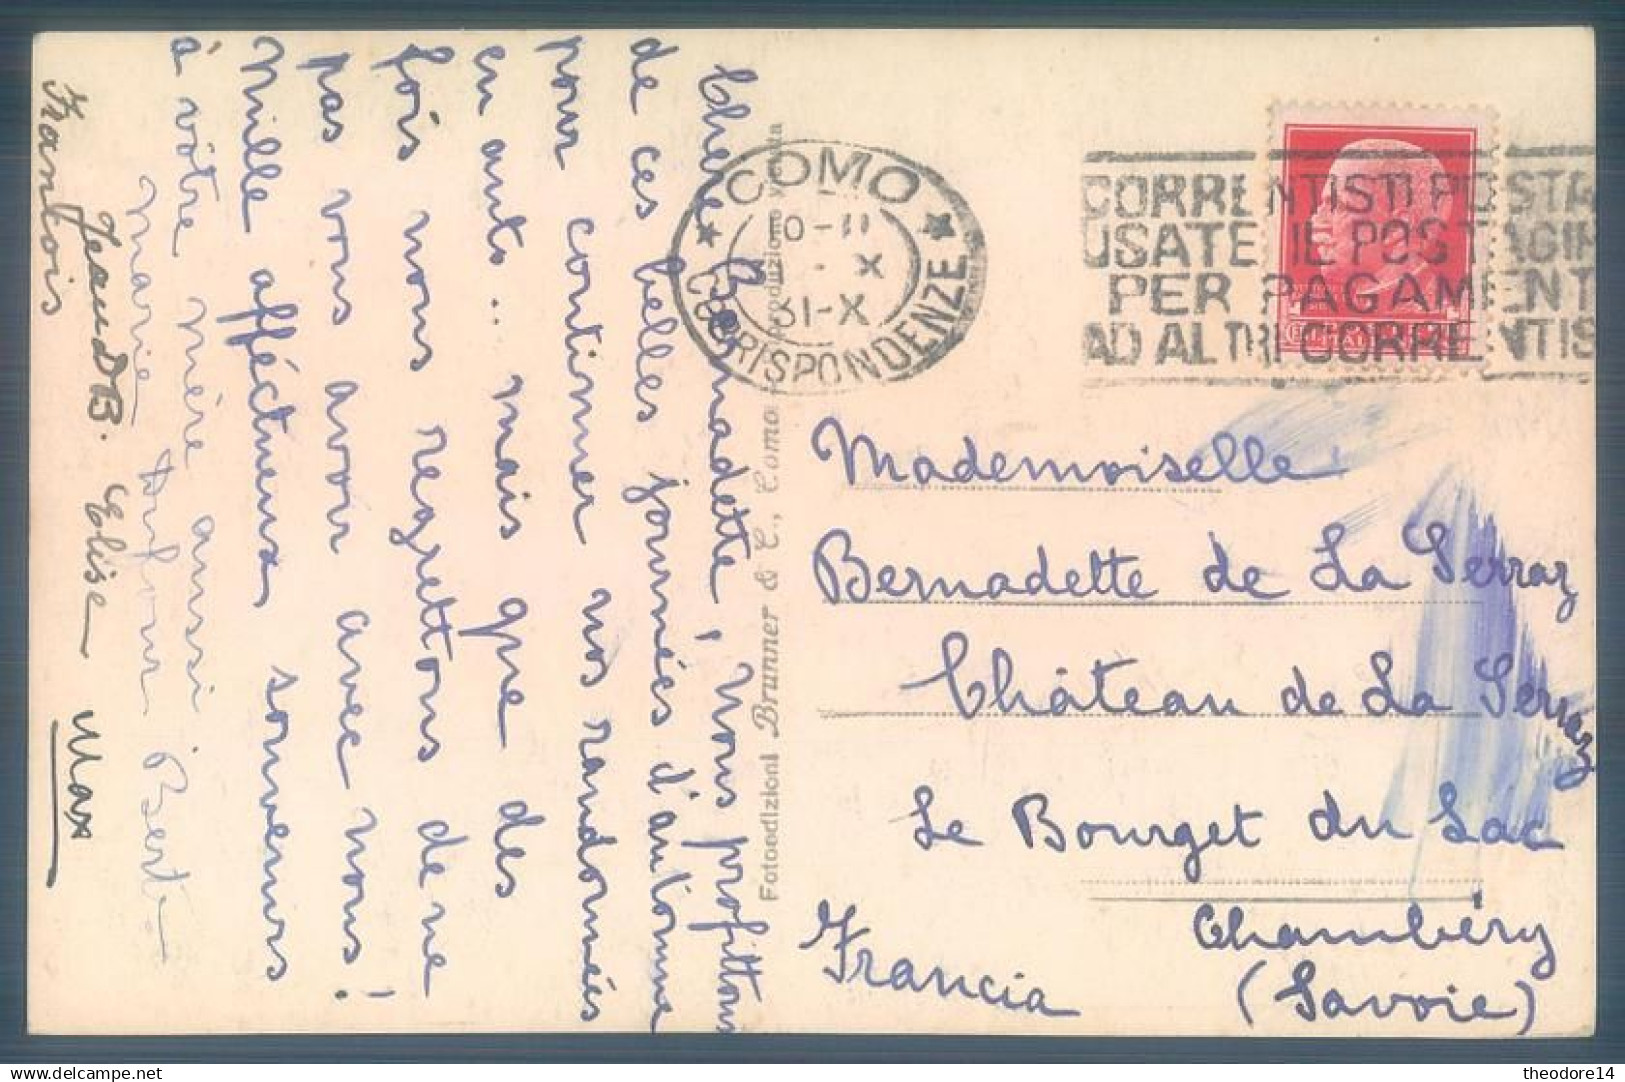 Chère Bernadette, nous profitons
de ces belles journées d'automne
pour continuer nos randonnées
en auto.. mais que des
fois nous regrettons de ne
pas vous avoir avec nous!
Mille affectueux souvenirs
à votre mère aussi
Marie Dufour Berta
Jean DB. Elise Max
François
Fotoedizioni Brunner & C., Como
COMO
10-II
X
31-X
CORRISPONDENZE
CORRENTISTI POSTA
USATE IL POSTAGIR
PER PAGAMENT
AD ALTRI CORRENTIS
Mademoiselle
Bernadette de La Serraz
Château de La Serraz
Le Bourget du Lac
Chambéry
(Savoie)
Francia
theodore14
delcampe.net